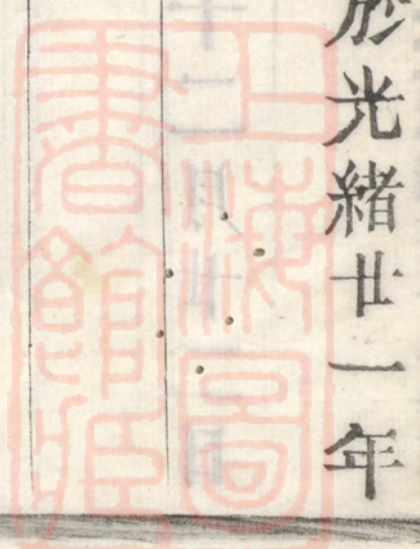 於光緒廿一年
上海圖
書館藏